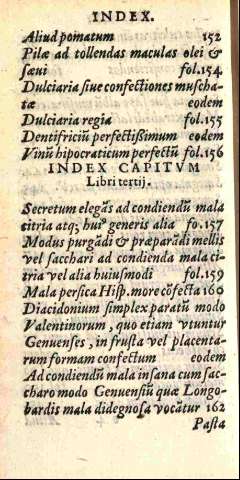 INDEX.
Aliud pomatum 152
Pilæ ad tollendas maculas olei &
sæui fol.154.
Dulciaria siue confectiones muscha-
tæ eodem
Dulciaria regia fol.155
Dentifriciũ perfectißimum eodem
Vinũ hipocraticum perfectũ fol.156
INDEX CAPITVM
Libri tertij.
Secretum elegãs ad condiendũ mala
citria atq; huiꝰ generis alia fo.157
Modus purgãdi & præparãdi mellis
vel sacchari ad condienda mala ci-
tria vel alia huiusmodi fol.159
Mala persica Hisp. more cõfecta 160
Diacidonium simplex paratũ modo
Valentinorum, quo etiam vtuntur
Genuenses, in frusta vel placenta-
rum formam confectum eodem
Ad condiendũ mala insana cum sac-
charo modo Genuensiũ quæ Longo-
bardis mala didegnosa vocãtur 162
Pasta